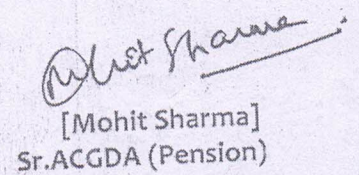 Mohit Sharma
[Mohit Sharma]
Sr.ACGDA (Pension)